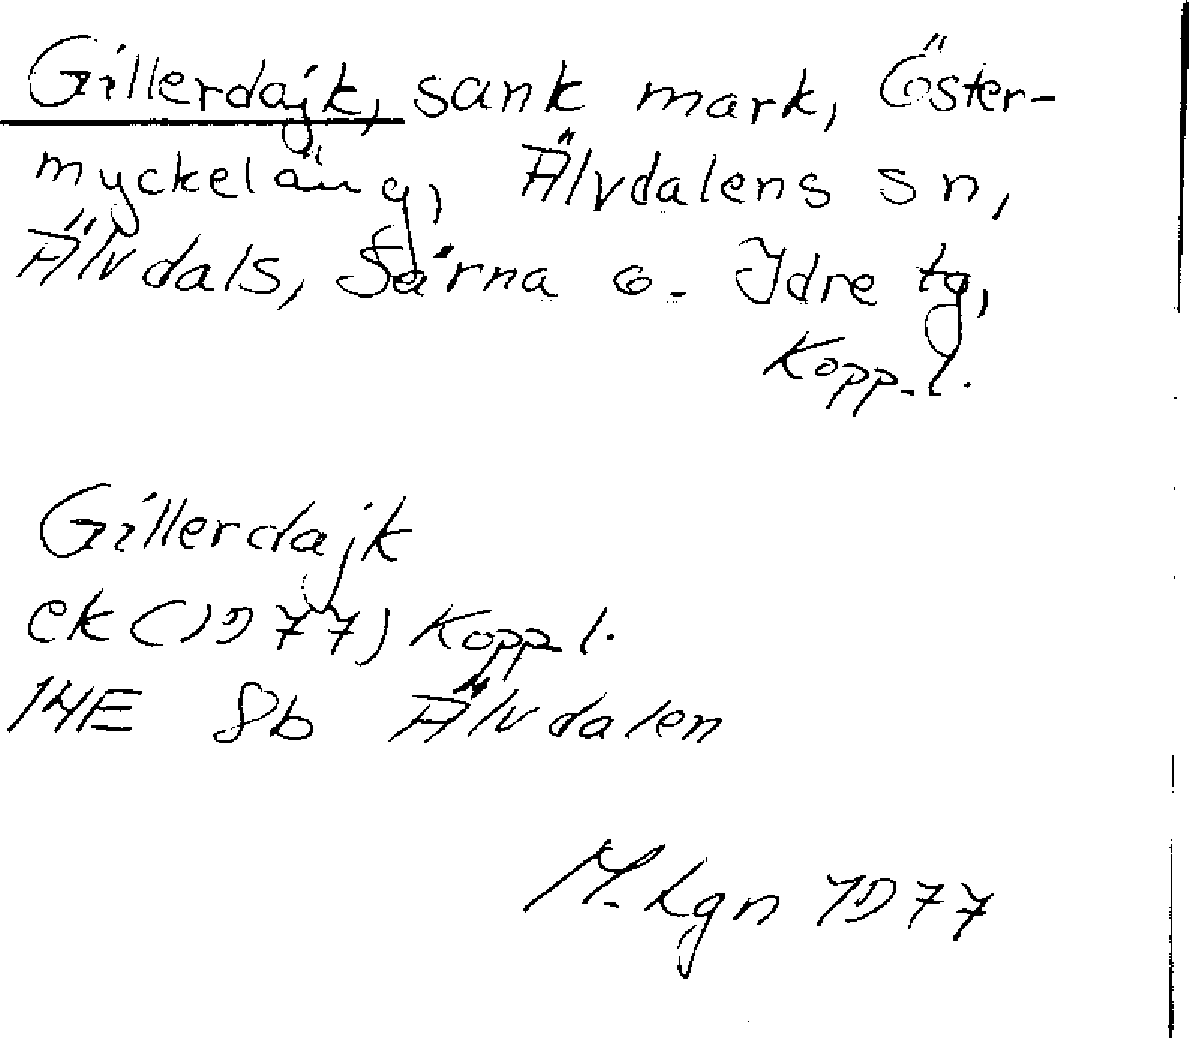 Gillerdajk, sank mark, Öster-
myckeläng, Älvdalens sn,
Älvdals, Särna o. Idre tg,
Kopp. l.
Gillerdajk
ek (1977) Kopp l.
14E 8b Älvdalen
M. Lgn 1977